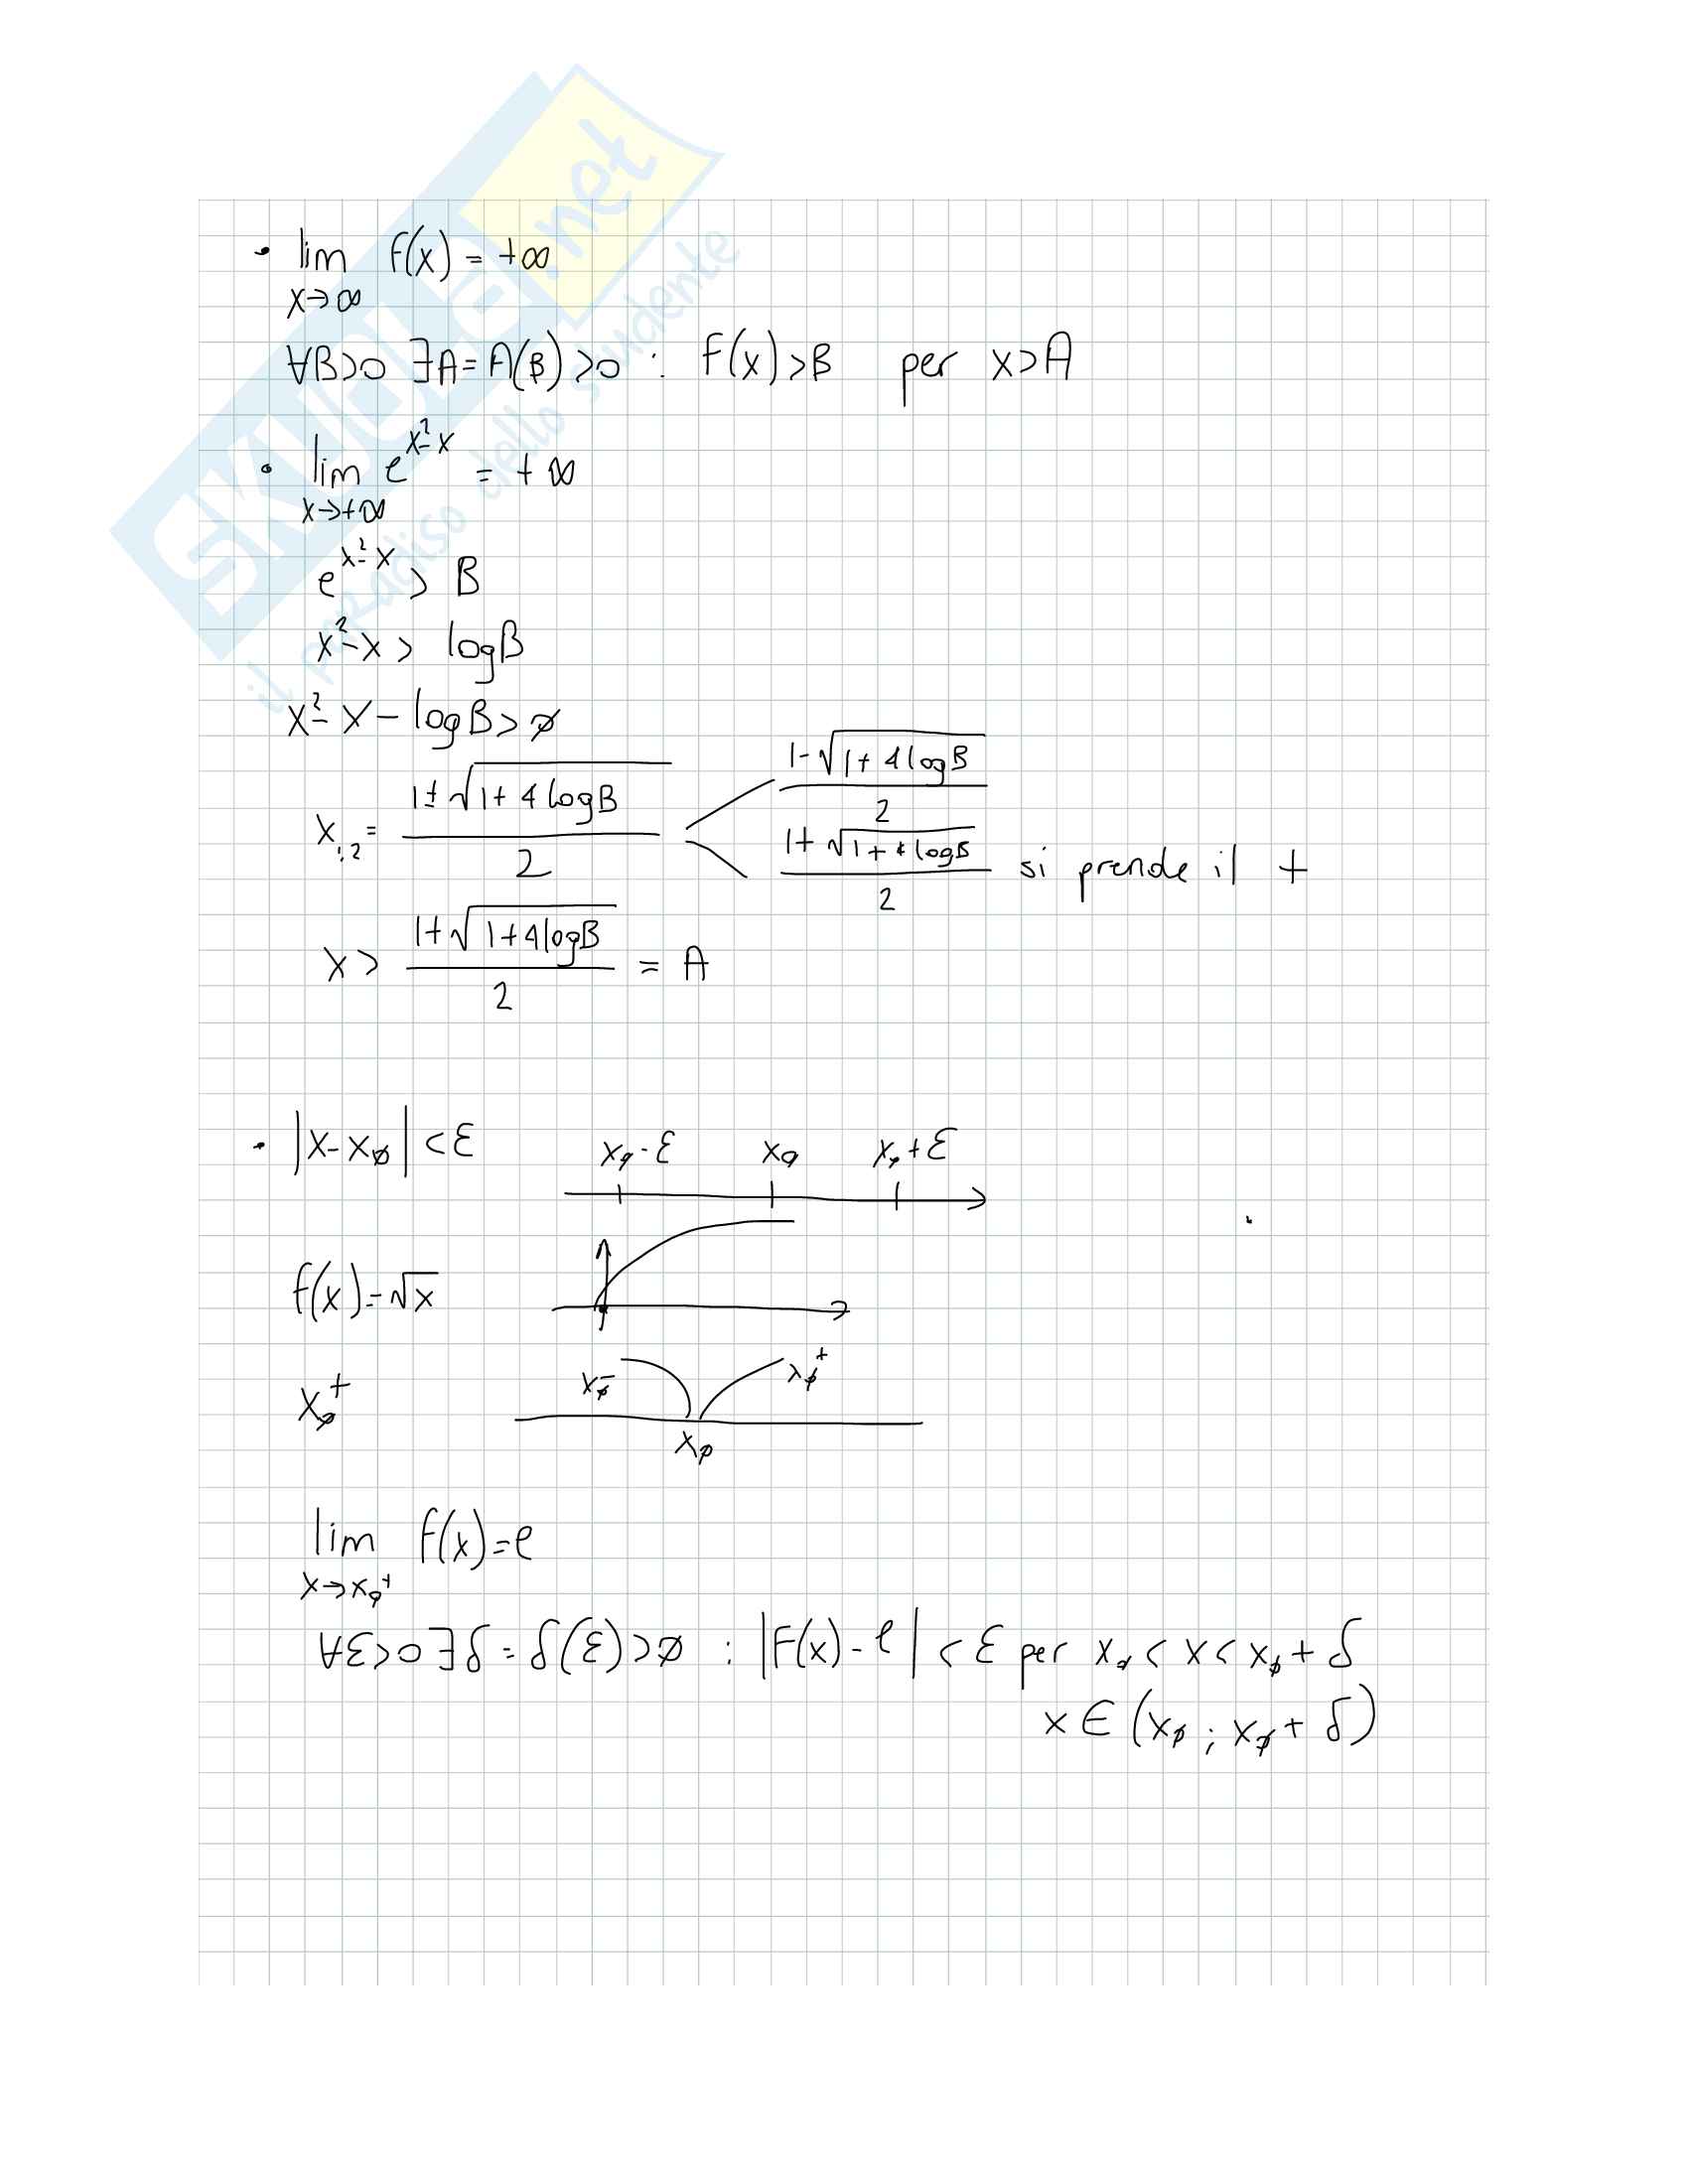 SKUOLA.net
il paradiso dello studente
• lim f(x) = +∞
x→∞
∀B>0 ∃A=A(B)>0 : f(x)>B per x>A
• lim e^(x²-x) = +∞
x→+∞
e^(x²-x) > B
x²-x > logB
x²-x-logB>∅
x₁,₂ = (1±√(1+4logB))/2 < (1-√(1+4logB))/2
(1+√(1+4logB))/2 si prende il +
x > (1+√(1+4logB))/2 = A
• |x-x₀| < ε
x₀-ε x₀ x₀+ε
f(x)=√x
x₀⁺ x₀⁻ x₀⁺
x₀
lim f(x)=ℓ
x→x₀⁺
∀ε>0 ∃δ=δ(ε)>∅ : |F(x)-ℓ| < ε per x₀<x<x₀+δ
x∈(x₀; x₀+δ)